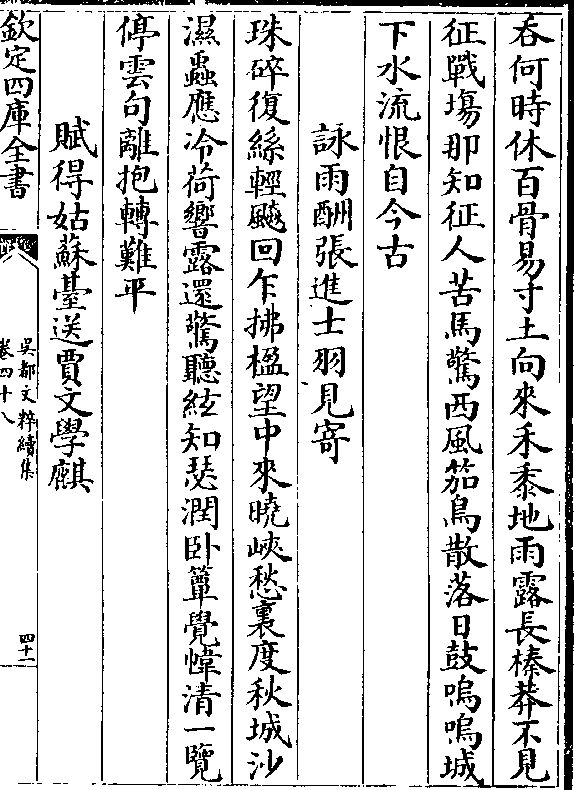 吞何時休百骨易寸土向來禾黍地雨露長榛莽不見
征戰塲那知征人苦馬驚西風笳鳥散落日鼓嗚嗚城
下水流恨自今古
詠雨酬張進士羽見寄
珠碎復絲輕飈回乍拂楹望中來曉峽愁裏度秋城沙
濕蟲應冷荷響露還驚聽絃知瑟潤卧簟覺幃清一覽
停雲句離抱轉難平
賦得姑蘇臺送賈文學麒
欽定四庫全書
吳都文粹續集
卷四十八
四十一